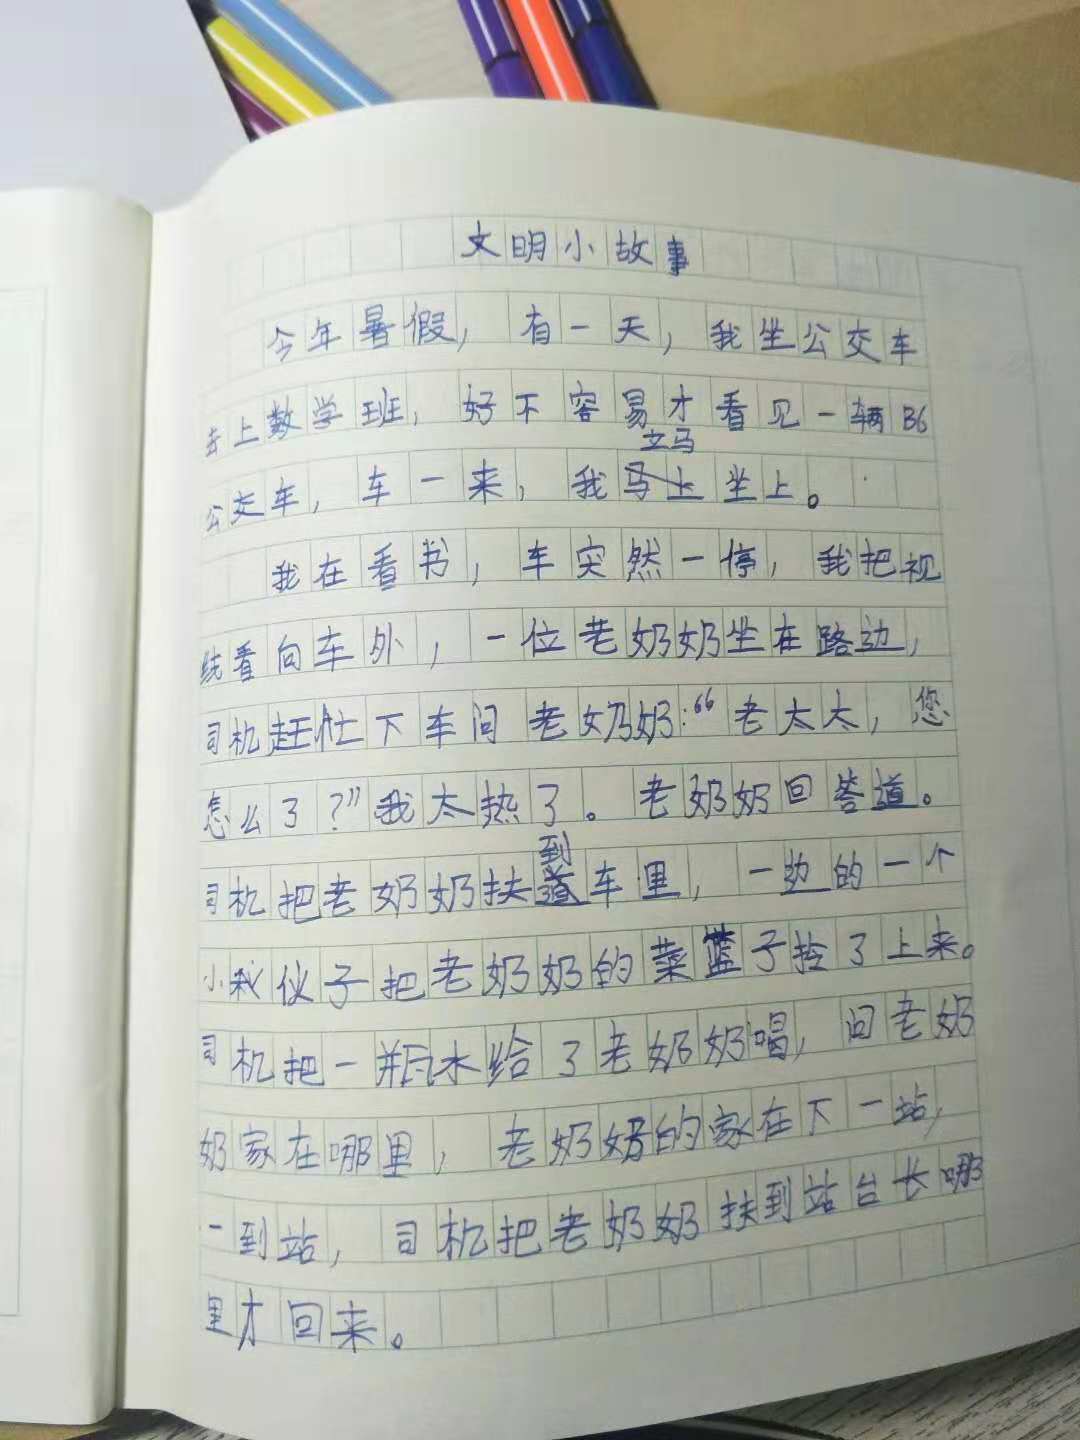 文明小故事
今年暑假，有一天，我坐公交车
去上数学班，好不容易才看见一辆B6
公交车，车一来，我立马坐上。
我在看书，车突然一停，我把视
线看向车外，一位老奶奶坐在路边，
司机赶忙下车问老奶奶:“老太太，您
怎么了?”我太热了。老奶奶回答道。
司机把老奶奶扶到车里，一边的一个
小伙子把老奶奶的菜篮子拎了上来。
司机把一瓶水给了老奶奶喝，问老奶
奶家在哪里，老奶奶的家在下一站，
一到站，司机把老奶奶扶到站台长哪
里才回来。